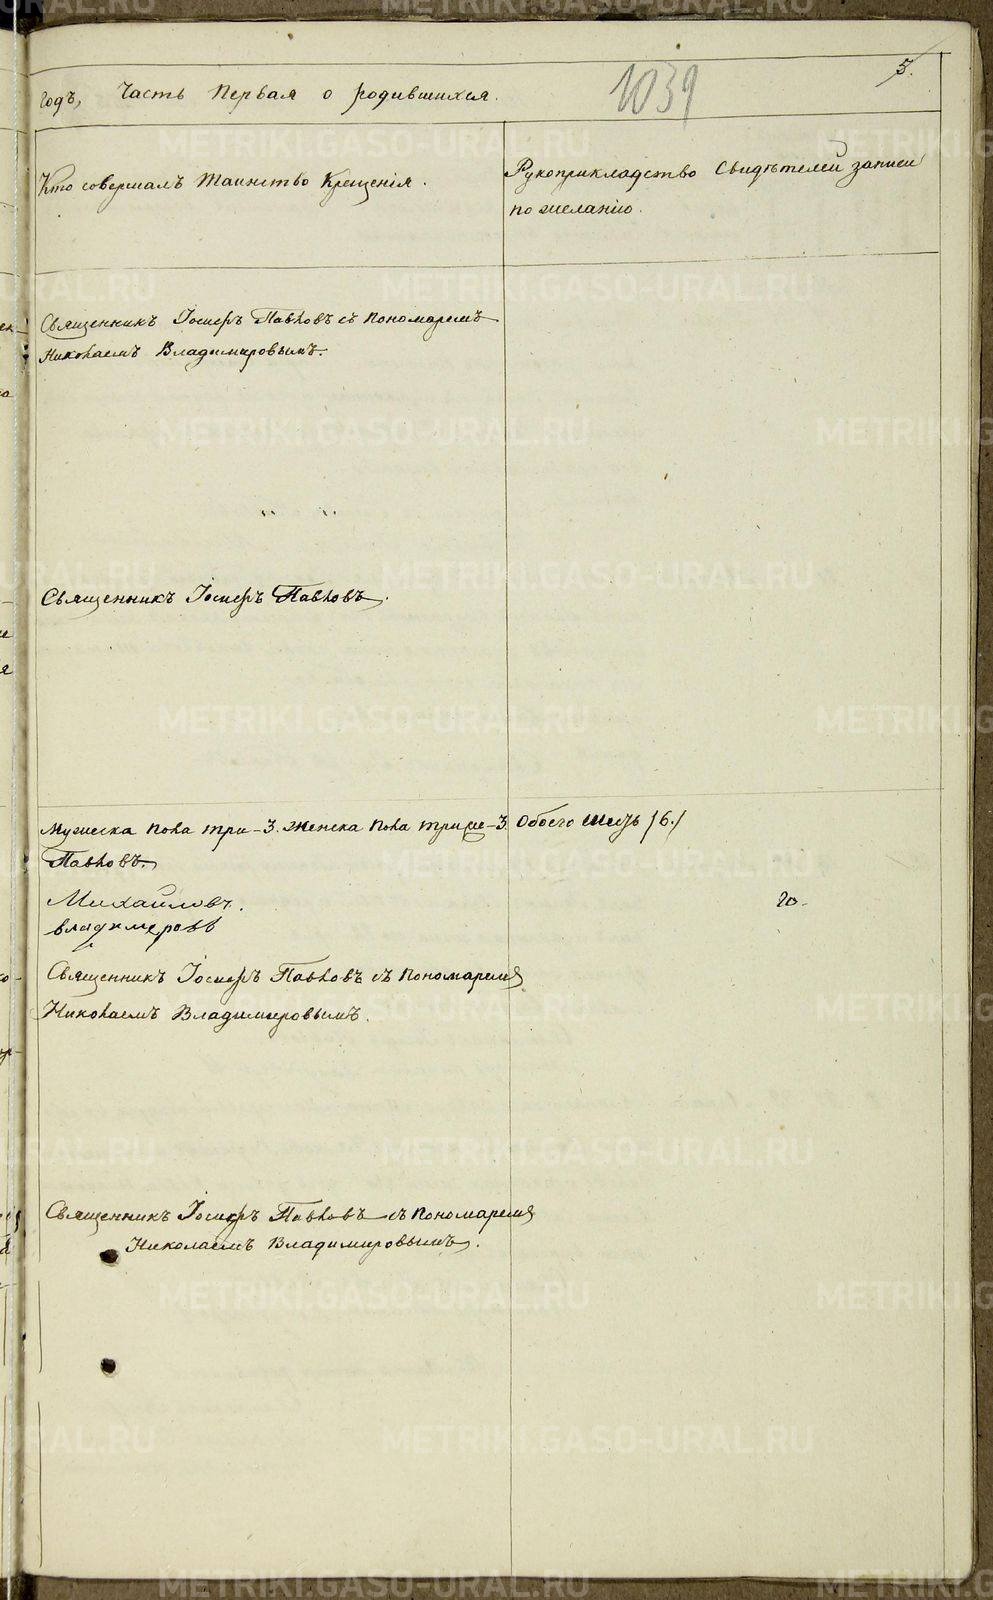 годъ, Часть Первая о родившихся.
1039
5.
Кто совершалъ таинство Крещенія.
Рукоприкладство Свидѣтелей записи
по желанію.
Священникъ Іосифъ Павловъ съ Пономаремъ
Николаемъ Владимировымъ.
" "
Священникъ Іосифъ Павловъ.
Мужеска пола три-3. Женска пола три-3. Обоего шесть /6./
Павловъ.
Михайловъ.
Владимеровъ
Священникъ Іосифъ Павловъ съ Пономаремъ
Николаемъ Владимировымъ.
Священникъ Іосифъ Павловъ съ Пономаремъ
Николаемъ Владимировымъ.
METRIKI.GASO-URAL.RU